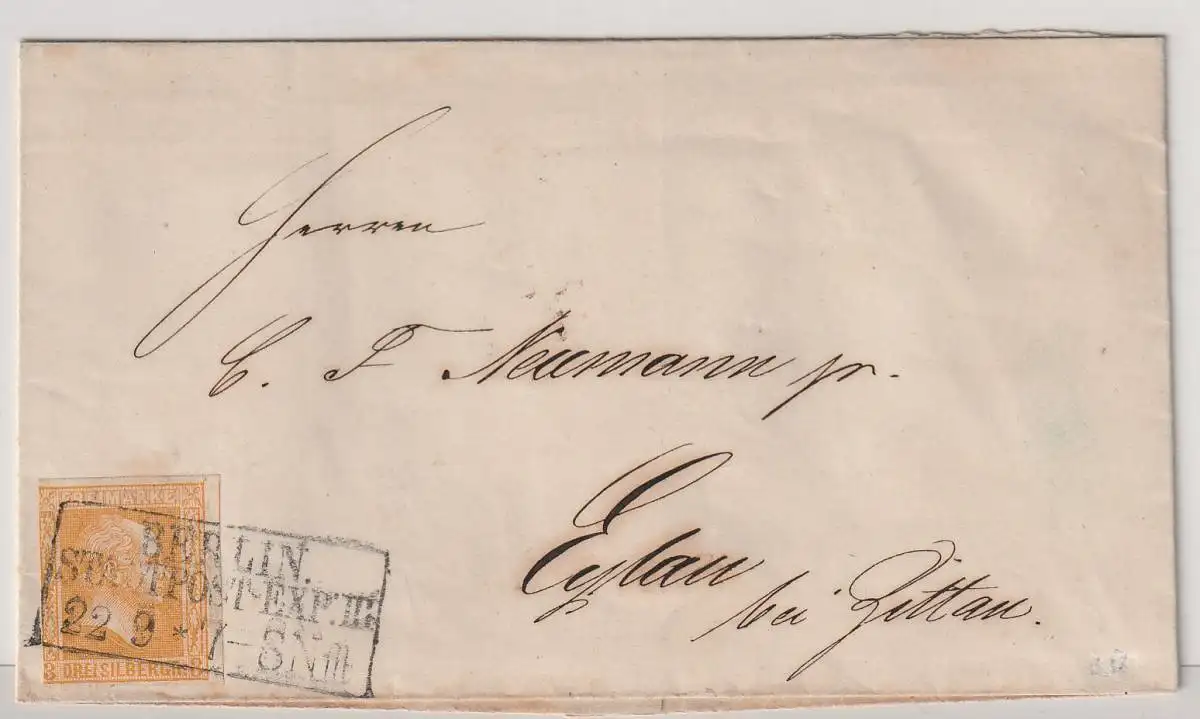 Herren
C. F. Neumann jr.
Eylau
bei Zittau.
FREIMARKE
BERLIN.
STADTPOST-EXP. III
22 9 * 7-8 Nm
3 DREI SILBERGR. 3